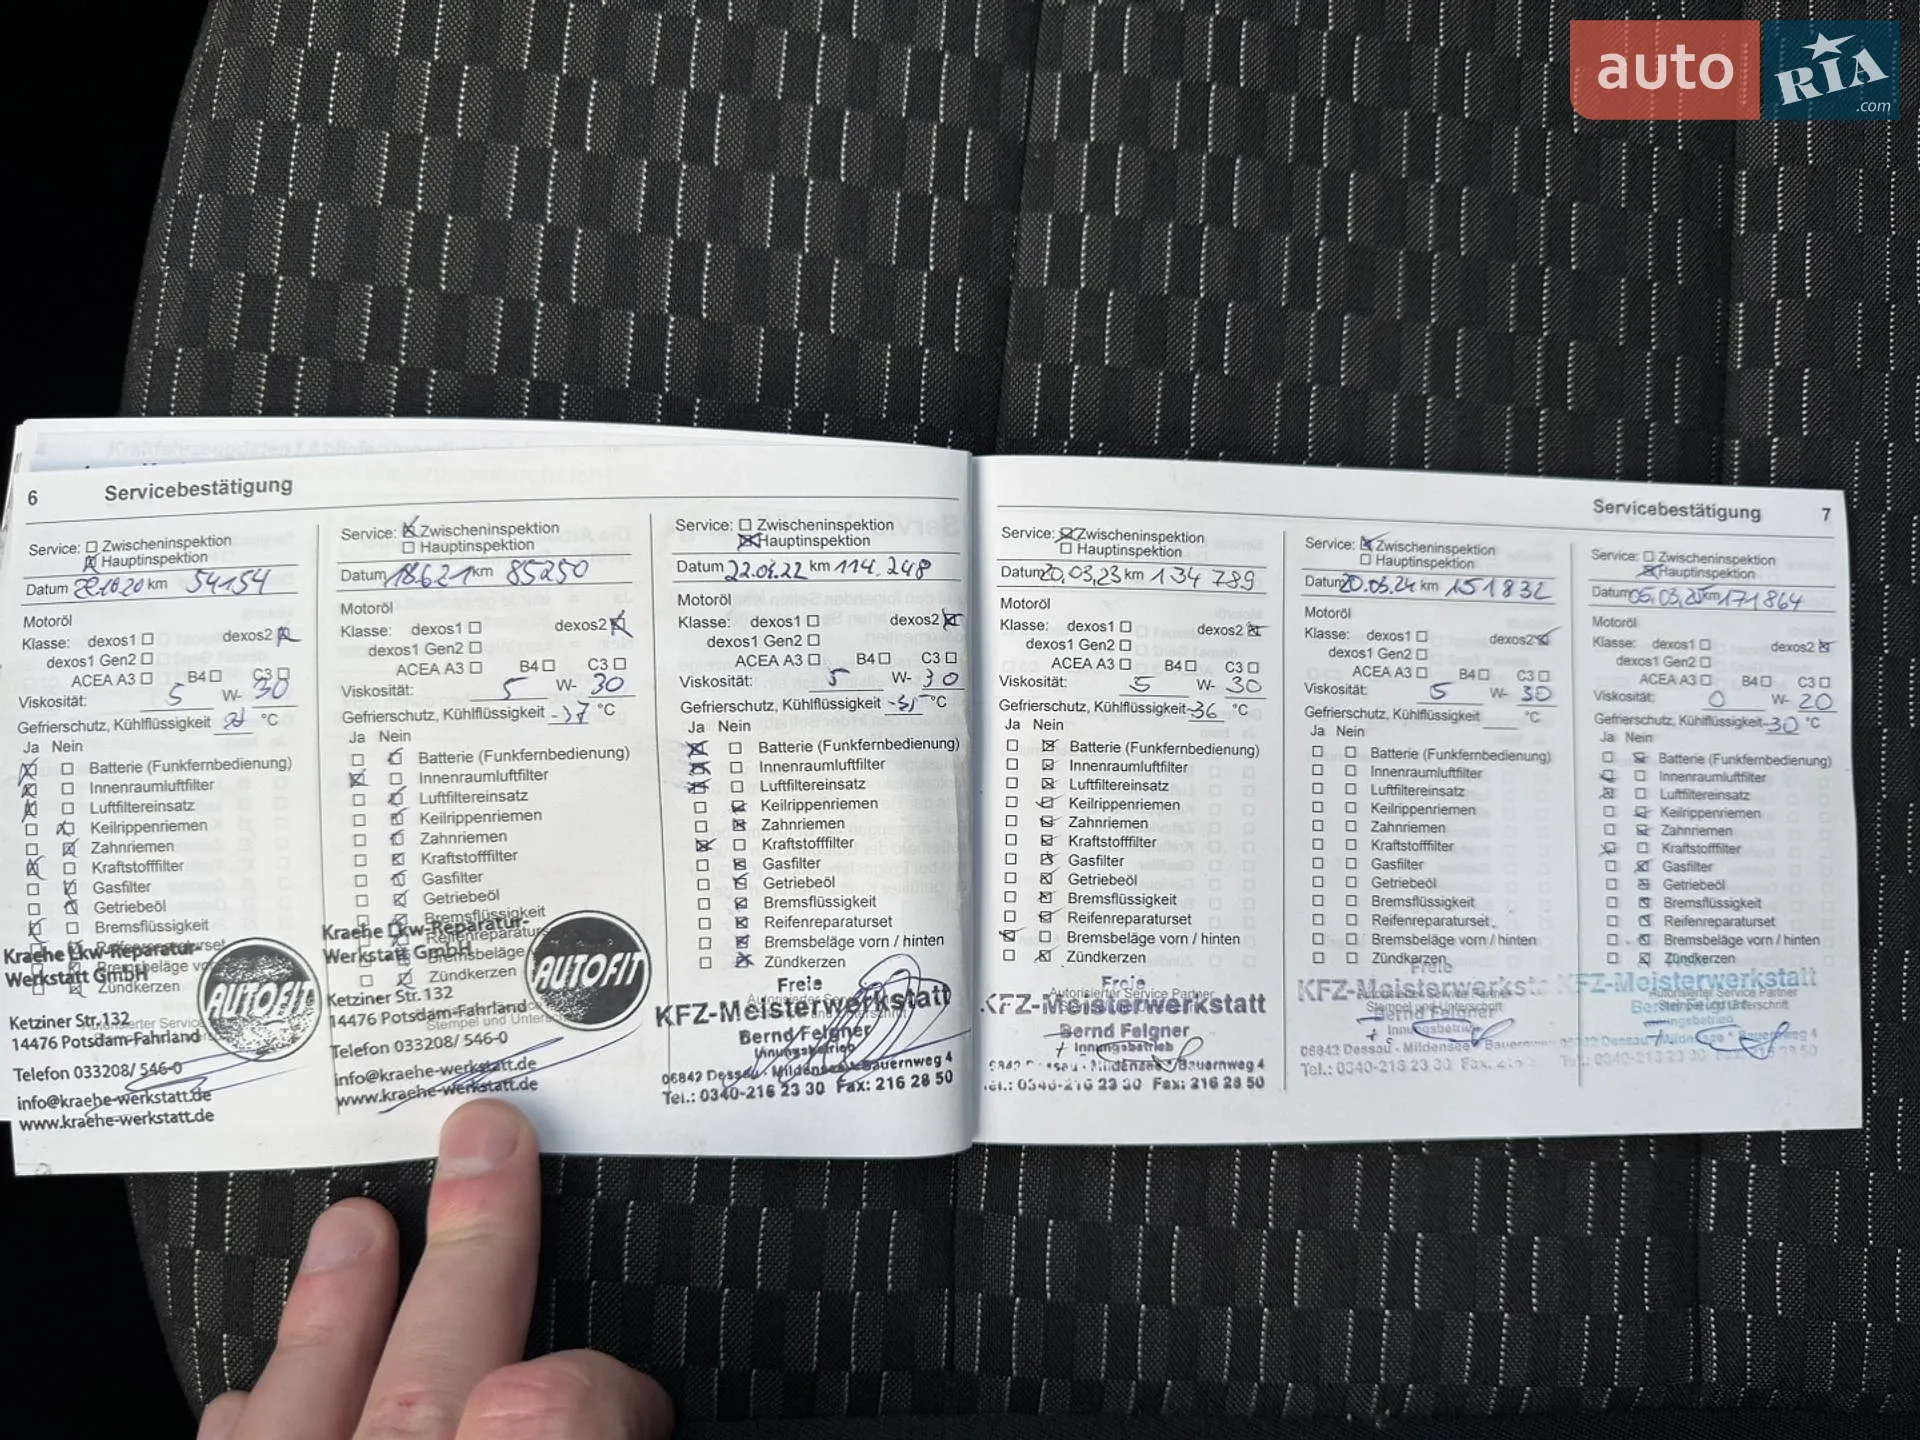 auto
RIA
.com
6
Servicebestätigung
Service: Zwischeninspektion
Hauptinspektion
Datum 22.10.20 km 54154
Motoröl
Klasse: dexos1 dexos2
dexos1 Gen2
ACEA A3 B4 C3
Viskosität: 5 W- 30
Gefrierschutz, Kühlflüssigkeit °C
Ja Nein
Batterie (Funkfernbedienung)
Innenraumluftfilter
Luftfiltereinsatz
Keilrippenriemen
Zahnriemen
Kraftstofffilter
Gasfilter
Getriebeöl
Bremsflüssigkeit
Zündkerzen
Kraehe Lkw-Reparatur-
Werkstatt GmbH
AUTOFIT
Ketziner Str.132
14476 Potsdam-Fahrland
Telefon 033208/ 546-0
info@kraehe-werkstatt.de
www.kraehe-werkstatt.de
Service: Zwischeninspektion
Hauptinspektion
Datum 18.6.21 km 85250
Motoröl
Klasse: dexos1 dexos2
dexos1 Gen2
ACEA A3 B4 C3
Viskosität: 5 W- 30
Gefrierschutz, Kühlflüssigkeit -37 °C
Ja Nein
Batterie (Funkfernbedienung)
Innenraumluftfilter
Luftfiltereinsatz
Keilrippenriemen
Zahnriemen
Kraftstofffilter
Gasfilter
Getriebeöl
Bremsflüssigkeit
Bremsbeläge
Zündkerzen
Kraehe Lkw-Reparatur-
Werkstatt GmbH
AUTOFIT
Ketziner Str.132
14476 Potsdam-Fahrland
Telefon 033208/ 546-0
info@kraehe-werkstatt.de
www.kraehe-werkstatt.de
Service: Zwischeninspektion
Hauptinspektion
Datum 22.03.22 km 114.248
Motoröl
Klasse: dexos1 dexos2
dexos1 Gen2
ACEA A3 B4 C3
Viskosität: 5 W- 30
Gefrierschutz, Kühlflüssigkeit °C
Ja Nein
Batterie (Funkfernbedienung)
Innenraumluftfilter
Luftfiltereinsatz
Keilrippenriemen
Zahnriemen
Kraftstofffilter
Gasfilter
Getriebeöl
Bremsflüssigkeit
Reifenreparaturset
Bremsbeläge vorn / hinten
Zündkerzen
Freie
KFZ-Meisterwerkstatt
Bernd Felgner
Innungsbetrieb
06842 Dessau - Mildensee Bauernweg 4
Tel.: 0340-216 23 30 Fax: 216 28 50
Servicebestätigung
7
Service: Zwischeninspektion
Hauptinspektion
Datum 20.03.23 km 134 789
Motoröl
Klasse: dexos1 dexos2
dexos1 Gen2
ACEA A3 B4 C3
Viskosität: 5 W- 30
Gefrierschutz, Kühlflüssigkeit -36 °C
Ja Nein
Batterie (Funkfernbedienung)
Innenraumluftfilter
Luftfiltereinsatz
Keilrippenriemen
Zahnriemen
Kraftstofffilter
Gasfilter
Getriebeöl
Bremsflüssigkeit
Reifenreparaturset
Bremsbeläge vorn / hinten
Zündkerzen
Freie
Autorisierter Service Partner
KFZ-Meisterwerkstatt
Bernd Felgner
Innungsbetrieb
Bauernweg 4
Tel.: 0340-216 23 30 Fax: 216 28 50
Service: Zwischeninspektion
Hauptinspektion
Datum 20.03.24 km 151832
Motoröl
Klasse: dexos1 dexos2
dexos1 Gen2
ACEA A3 B4 C3
Viskosität: 5 W- 30
Gefrierschutz, Kühlflüssigkeit °C
Ja Nein
Batterie (Funkfernbedienung)
Innenraumluftfilter
Luftfiltereinsatz
Keilrippenriemen
Zahnriemen
Kraftstofffilter
Gasfilter
Getriebeöl
Bremsflüssigkeit
Reifenreparaturset
Bremsbeläge vorn / hinten
Zündkerzen
Freie
KFZ-Meisterwerkst
Bernd Felgner
Innungsbetrieb
06842 Dessau - Mildensee Bauernweg
Tel.: 0340-216 23 30 Fax:
Service: Zwischeninspektion
Hauptinspektion
Datum 05.03.25 km 171864
Motoröl
Klasse: dexos1 dexos2
dexos1 Gen2
ACEA A3 B4 C3
Viskosität: 0 W- 20
Gefrierschutz, Kühlflüssigkeit -30 °C
Ja Nein
Batterie (Funkfernbedienung)
Innenraumluftfilter
Luftfiltereinsatz
Keilrippenriemen
Zahnriemen
Kraftstofffilter
Gasfilter
Getriebeöl
Bremsflüssigkeit
Reifenreparaturset
Bremsbeläge vorn / hinten
Zündkerzen
KFZ-Meisterwerkstatt
Autorisierter Service Partner
Stempel und Unterschrift